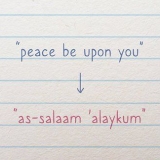 "peace be upon you"
↓
"as-salaam 'alaykum"